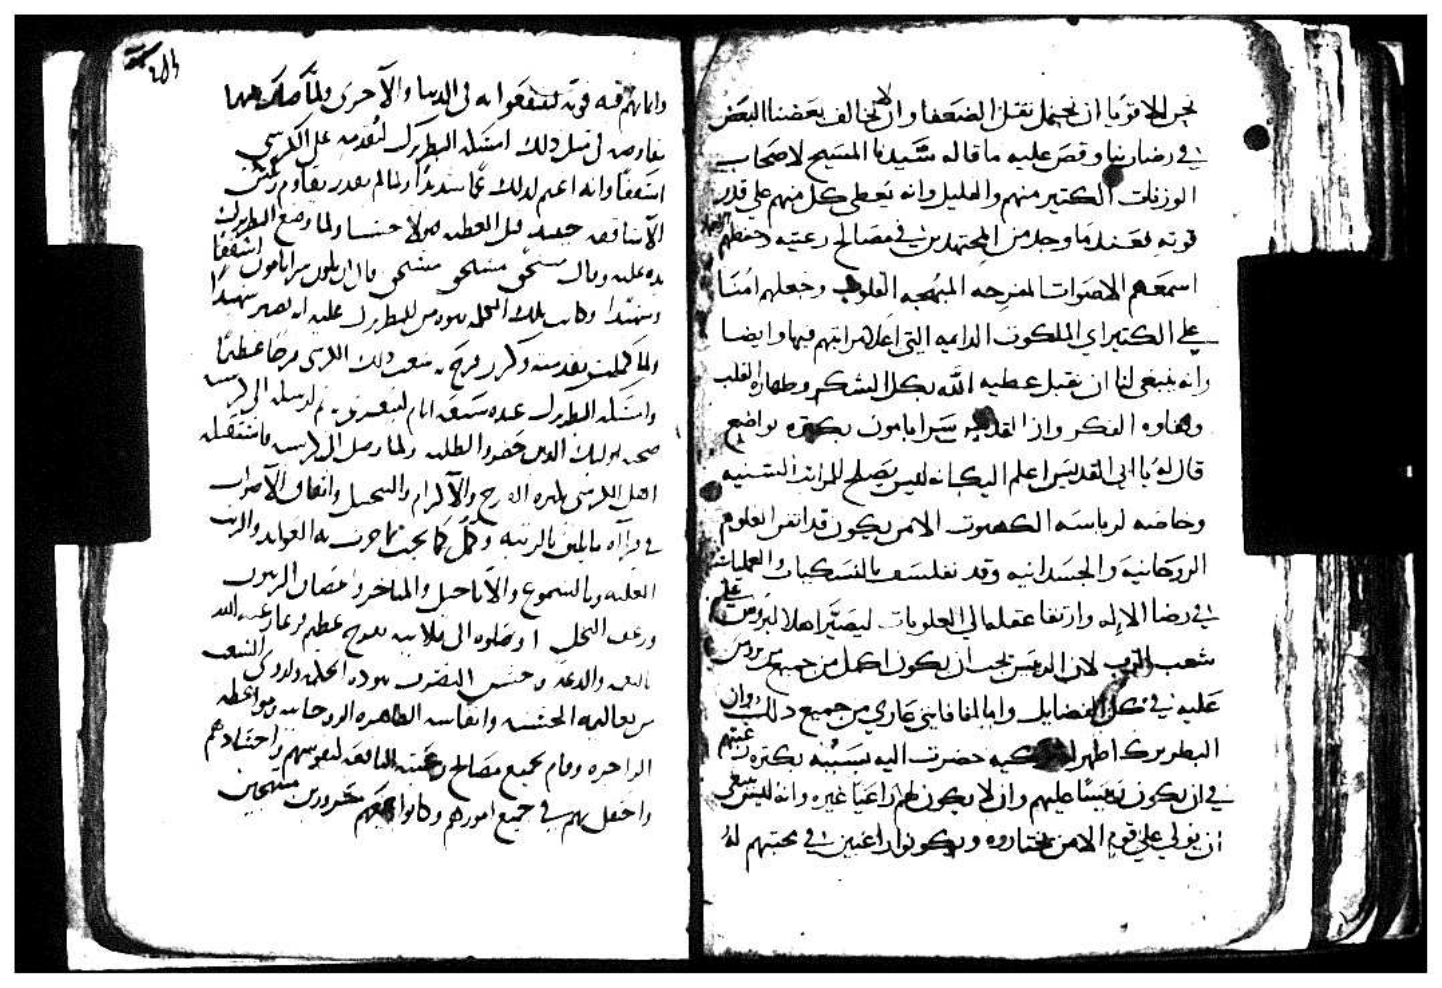 نحن الاقويا ان نحتمل ثقل الضعفا وان لا يخالف بعضنا البعض
في رضا ربنا وقص عليه ما قاله سيدنا المسيح لاصحاب
الوزنات الكتير منهم والقليل وانه يعطي كل منهم على قدر
قوته فعند ما وجد من المجتهدين في مصالح رعيته
اسمعهم الاصوات المفرحه المبهجه القلوب وجعلهم امنا
على الكتير اي الملكوت الدايمه التي اعلا مراتبهم فيها وايضا
وانه ينبغي لنا ان نقبل عطيه الله بكل الشكر وطهارة القلب
ونقاوه الفكر وان القديس سرابامون بكتره تواضع
قال له يا ابي القديس اعلم اليك انه ليس يصلح للمراتب السنيه
وخاصه لرياسه الكهنوت الا من يكون قد اتقن العلوم
الروحانيه والجسدانيه وقد تفلسف بالنسكيات والعمليات
في رضا الاله وارتقا عقله الى العلويات ليصير اهلا ليروس على
شعب الرب لان الريس يجب ان يكون اكمل من جميع من يروس
عليه في كل الفضايل واما انا فانني عاري من جميع ذلك وان
البطريرك اظهر له حضرت اليه بسببه بكتره رغبتهم
في ان يكون ريسا عليهم وان لا يكون لهم راعيا غيره وانه ليس ينبغي
ان يولي على قوم الا من يختاروه ويكونوا راغبين في محبتهم له
وامانتهم فيه قوته لينتفعوا به في الدنيا والآخرى ولما
في مثل ذلك امسكه البطريرك ليقدمه على الكرسي
اسقفا وانه اغتم لذلك غما شديدا ولما لم يقدر يقاوم
الاساقفه حينيد ولما وضع البطريرك
يده عليه وقال مستحق مستحق مستحق قال ان يكون سرابامون اسقفا
وشهيدا وكانت تلك الكلمه نبوه من البطريرك عليه انه يصير شهيدا
ولما كملت تقدمته وكرز فرح شعب ذلك الكرسي فرحا عظيما
وامسكه البطريرك عنده سبعة ايام ثم ارسله الى كرسيه
صحبة اوليك الدين حضروا لطلبه ولما وصل الى كرسيه فاستقبله
اهل الكرسي بكتره الفرح والاكرام والتبجيل واتفاق الاصوات
في قراآه ما يليق بالرتبه وكل كما يجب ما جرت به العوايد والرتب
وبالشموع والاناجيل والمباخر واغصان الزيتون
وزعف النخل اوصلوه الى قلايته بفرح عظيم
من تعاليمه الحسنه وانفاسه الطاهره الروحانيه ومواعظه
الزاخره وقام بجميع مصالح رعيته النافعه لنفوسهم واجسادهم
واحتفل بهم في جميع امورهم وكانوا مسرورين مبتهجين